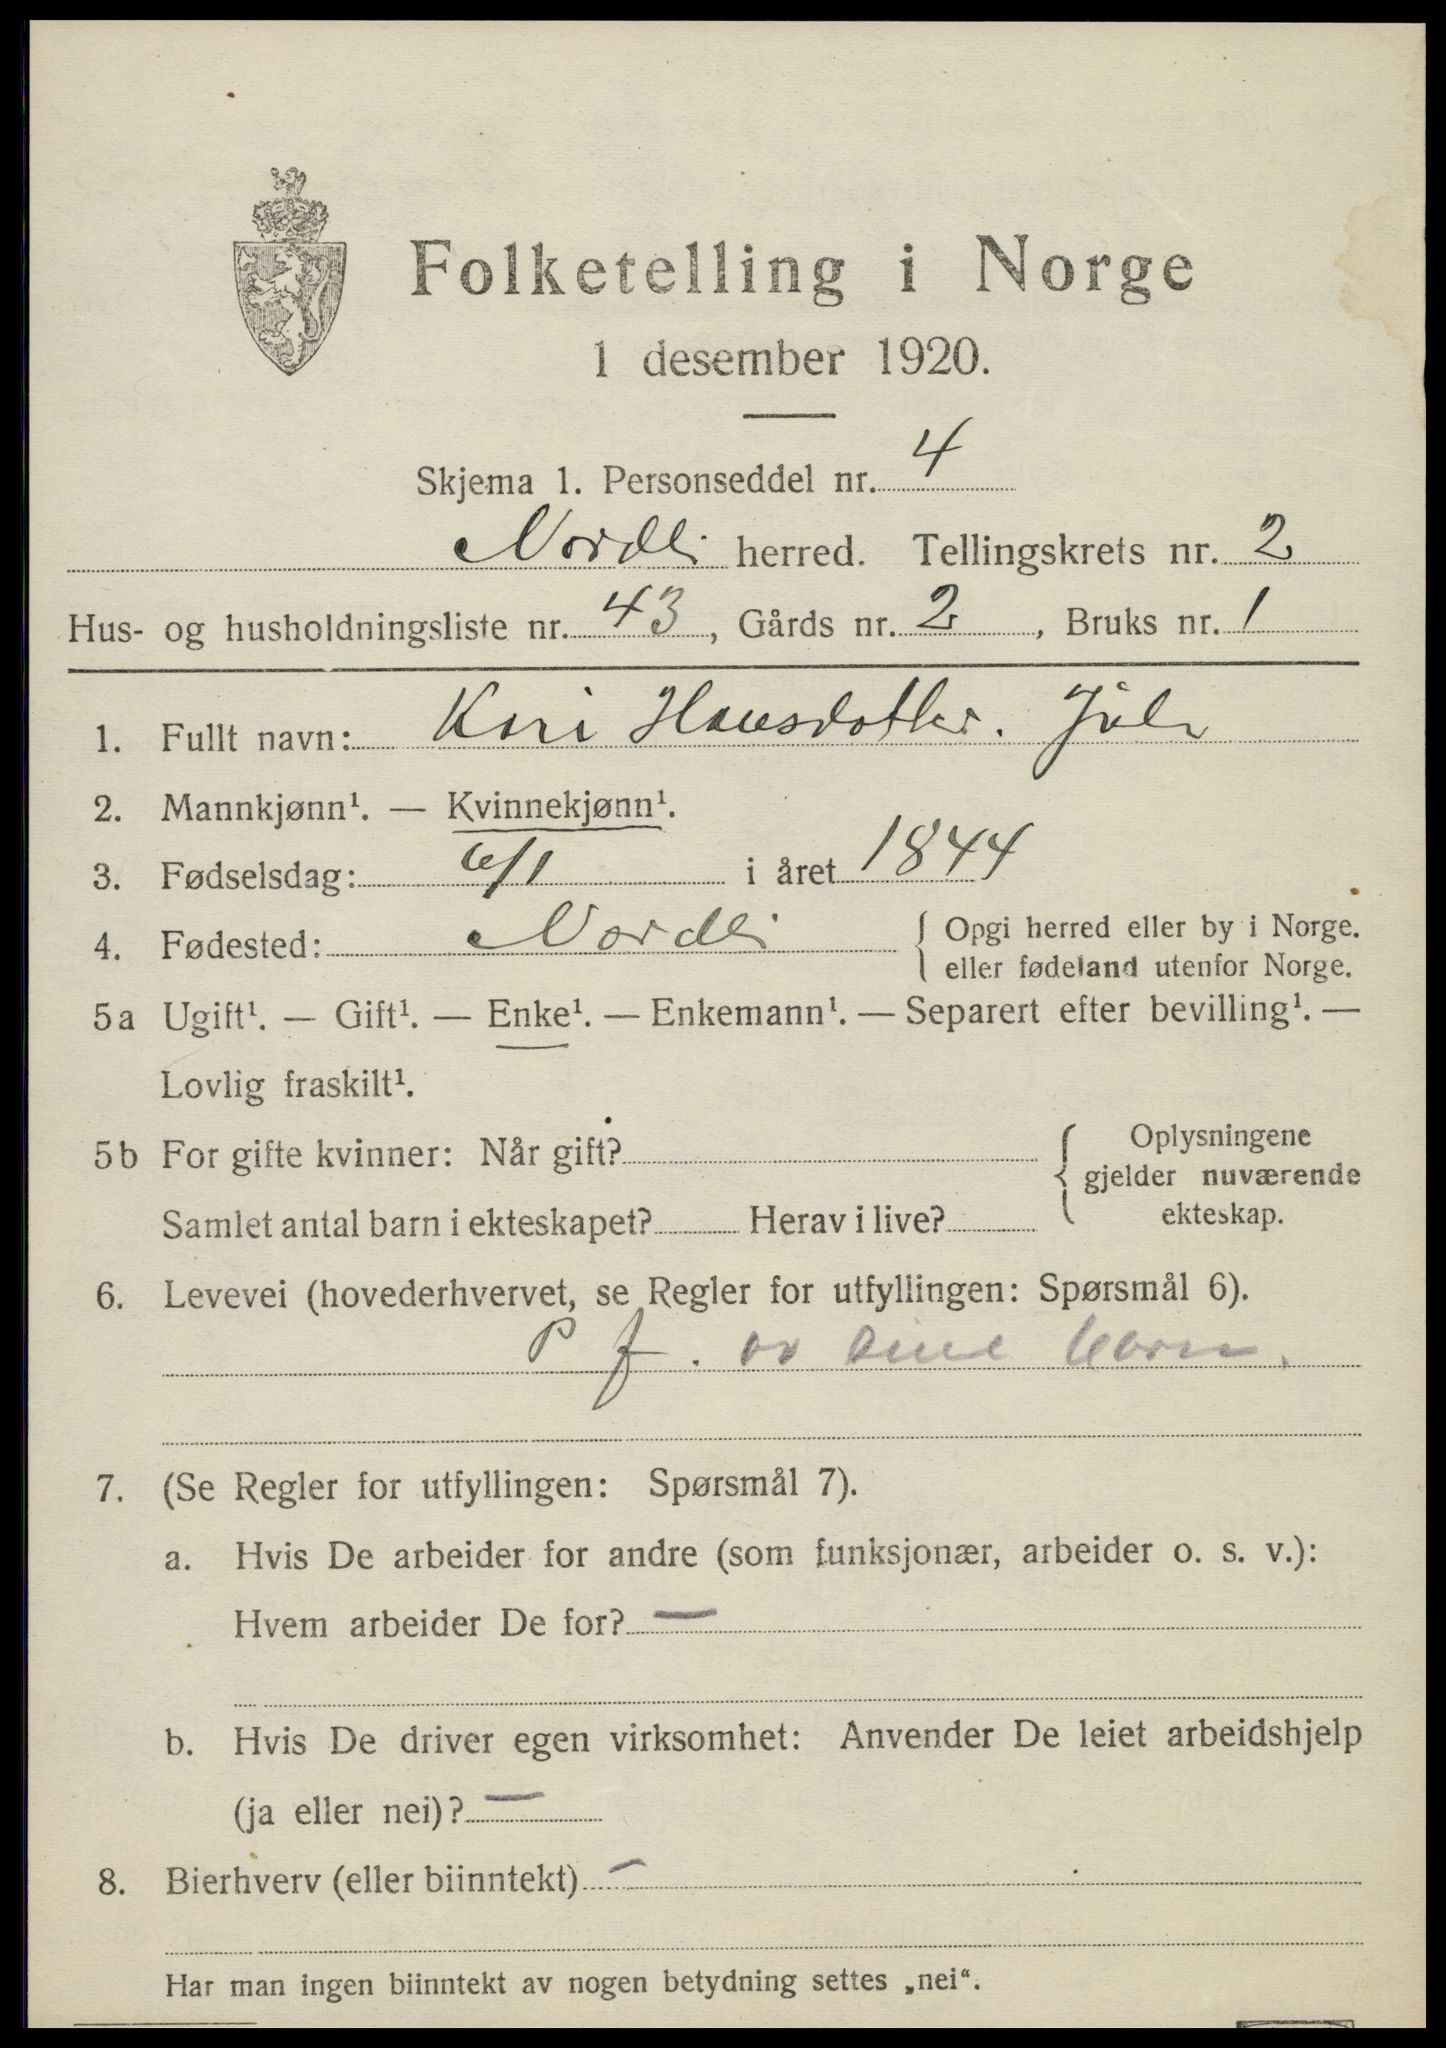 Folketelling i Norge
1 desember 1920.
Skjema 1. Personseddel nr. 4
Nordli herred. Tellingskrets nr. 2
Hus- og husholdningsliste nr. 43, Gårds nr. 2, Bruks nr. 1
1. Fullt navn: Kari Hansdotter.
2. Mannkjønn¹. — Kvinnekjønn¹.
3. Fødselsdag: 6/1 i året 1844
4. Fødested: Nordli { Opgi herred eller by i Norge.
eller fødeland utenfor Norge.
5a Ugift¹. — Gift¹. — Enke¹. — Enkemann¹. — Separert efter bevilling¹. —
Lovlig fraskilt¹.
5b For gifte kvinner: Når gift? { Oplysningene
gjelder nuværende
Samlet antal barn i ekteskapet? Herav i live? ekteskap.
6. Levevei (hovederhvervet, se Regler for utfyllingen: Spørsmål 6).
P f. av sine barn.
7. (Se Regler for utfyllingen: Spørsmål 7).
a. Hvis De arbeider for andre (som funksjonær, arbeider o. s. v.):
Hvem arbeider De for? —
b. Hvis De driver egen virksomhet: Anvender De leiet arbeidshjelp
(ja eller nei)? —
8. Bierhverv (eller biinntekt) —
Har man ingen biinntekt av nogen betydning settes „nei“.